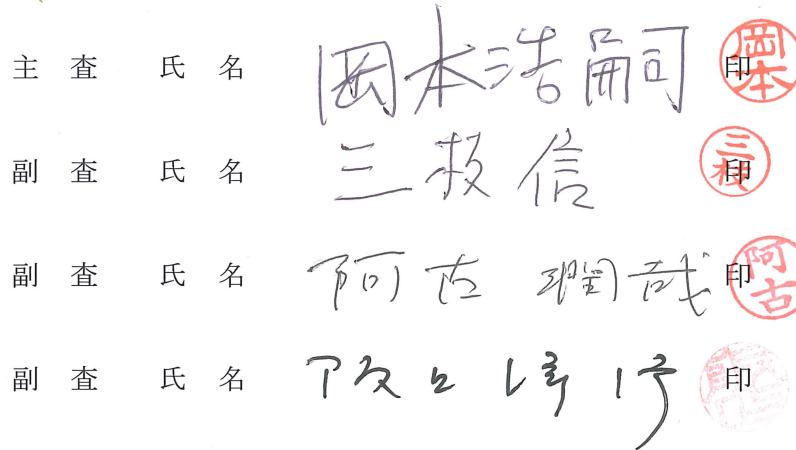 主 査 氏 名 岡本浩嗣 印 岡本
副 査 氏 名 三枝信 印 三枝
副 査 氏 名 阿古潤哉 印 阿古
副 査 氏 名 阪上 印